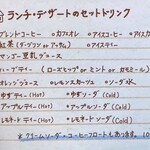 ランチ・デザートのセットドリンク
ブレンドコーヒー □カフェオレ □アイスコーヒー □アイスカ
紅茶(ダージリン or アッサム) □アイスティー
マンゴー豆乳ジュース
ハーブティー (ローズヒップ or ミント or カモミール)
オレンジジュース □レモンスカッシュ □ソーダ水
ゆずティー(Hot) □ゆずソーダ(Cold)
アップルティー(Hot) □アップルソーダ(Cold)
レモネードティー(Hot) □レモネードソーダ(Cold)
※クリームソーダ・コーヒーフロートもあります。10